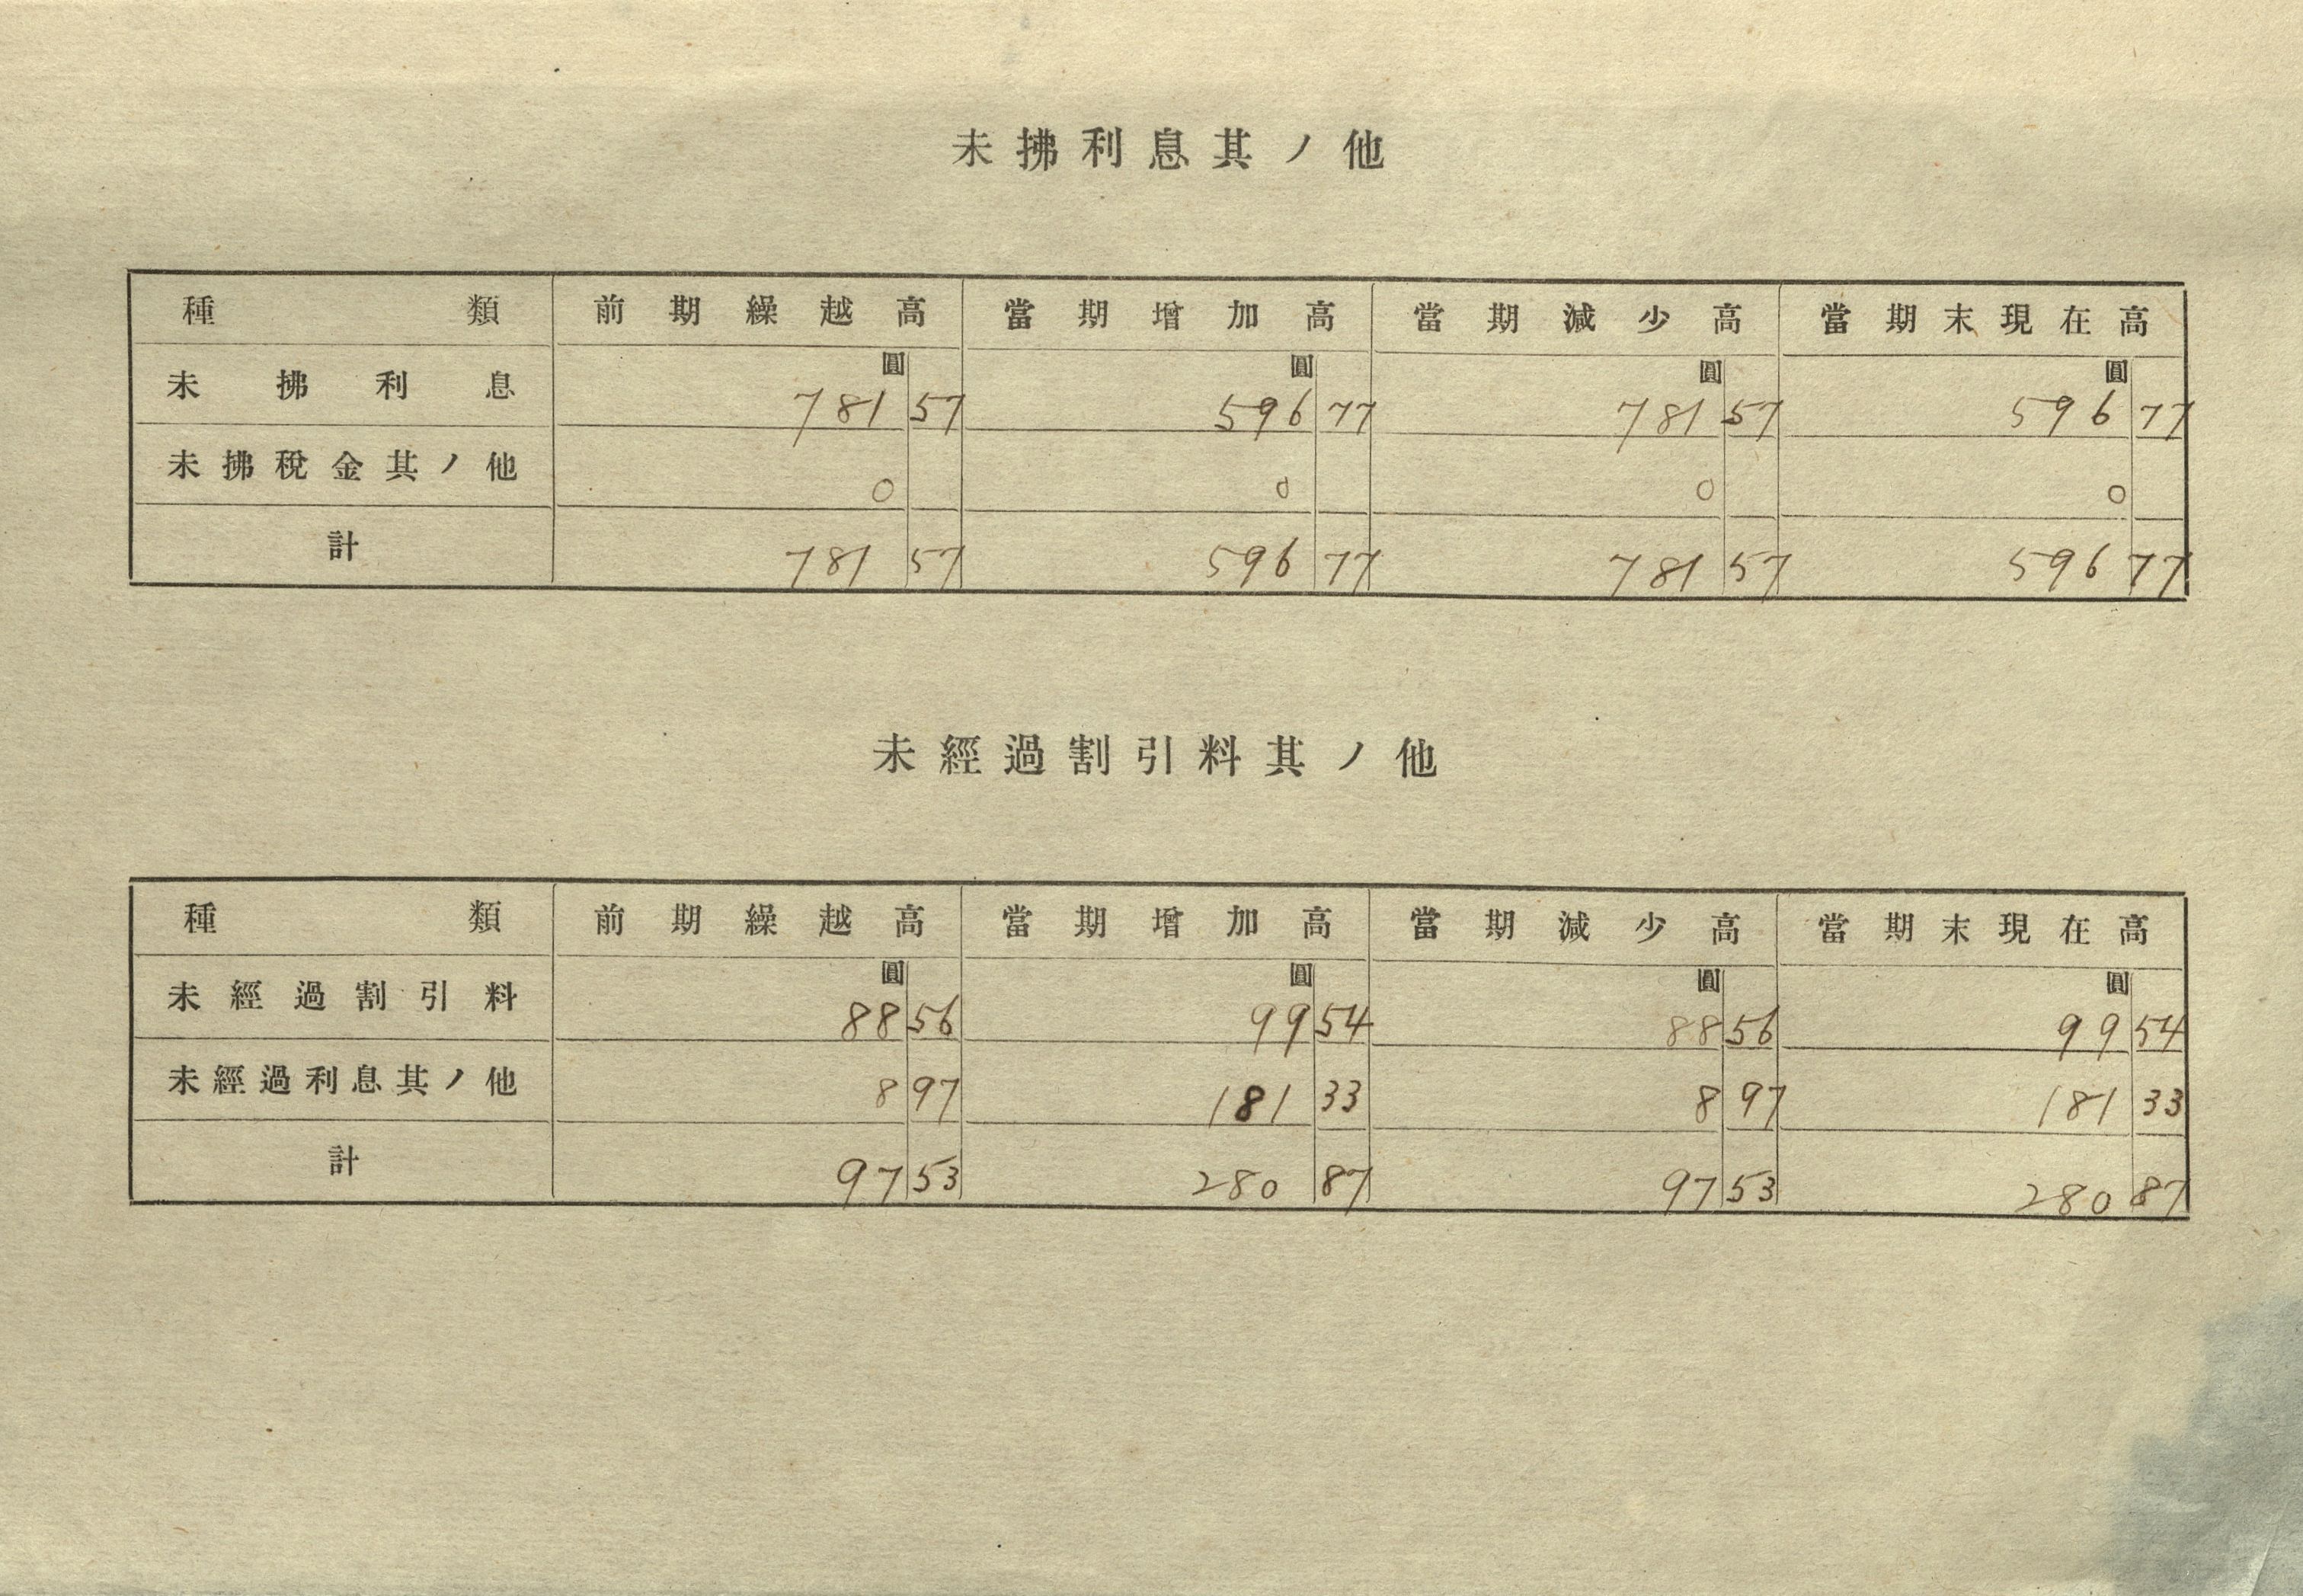 未拂利息其ノ他
種類 前期繰越高 當期增加高 當期減少高 當期末現在高
圓 圓 圓 圓
未拂利息 781 57 596 77 781 57 596 77
未拂稅金其ノ他 0 0 0 0
計 781 57 596 77 781 57 596 77
未經過割引料其ノ他
種類 前期繰越高 當期增加高 當期減少高 當期末現在高
圓 圓 圓 圓
未經過割引料 88 56 99 54 88 56 99 54
未經過利息其ノ他 8 97 181 33 8 97 181 33
計 97 53 280 87 97 53 280 87